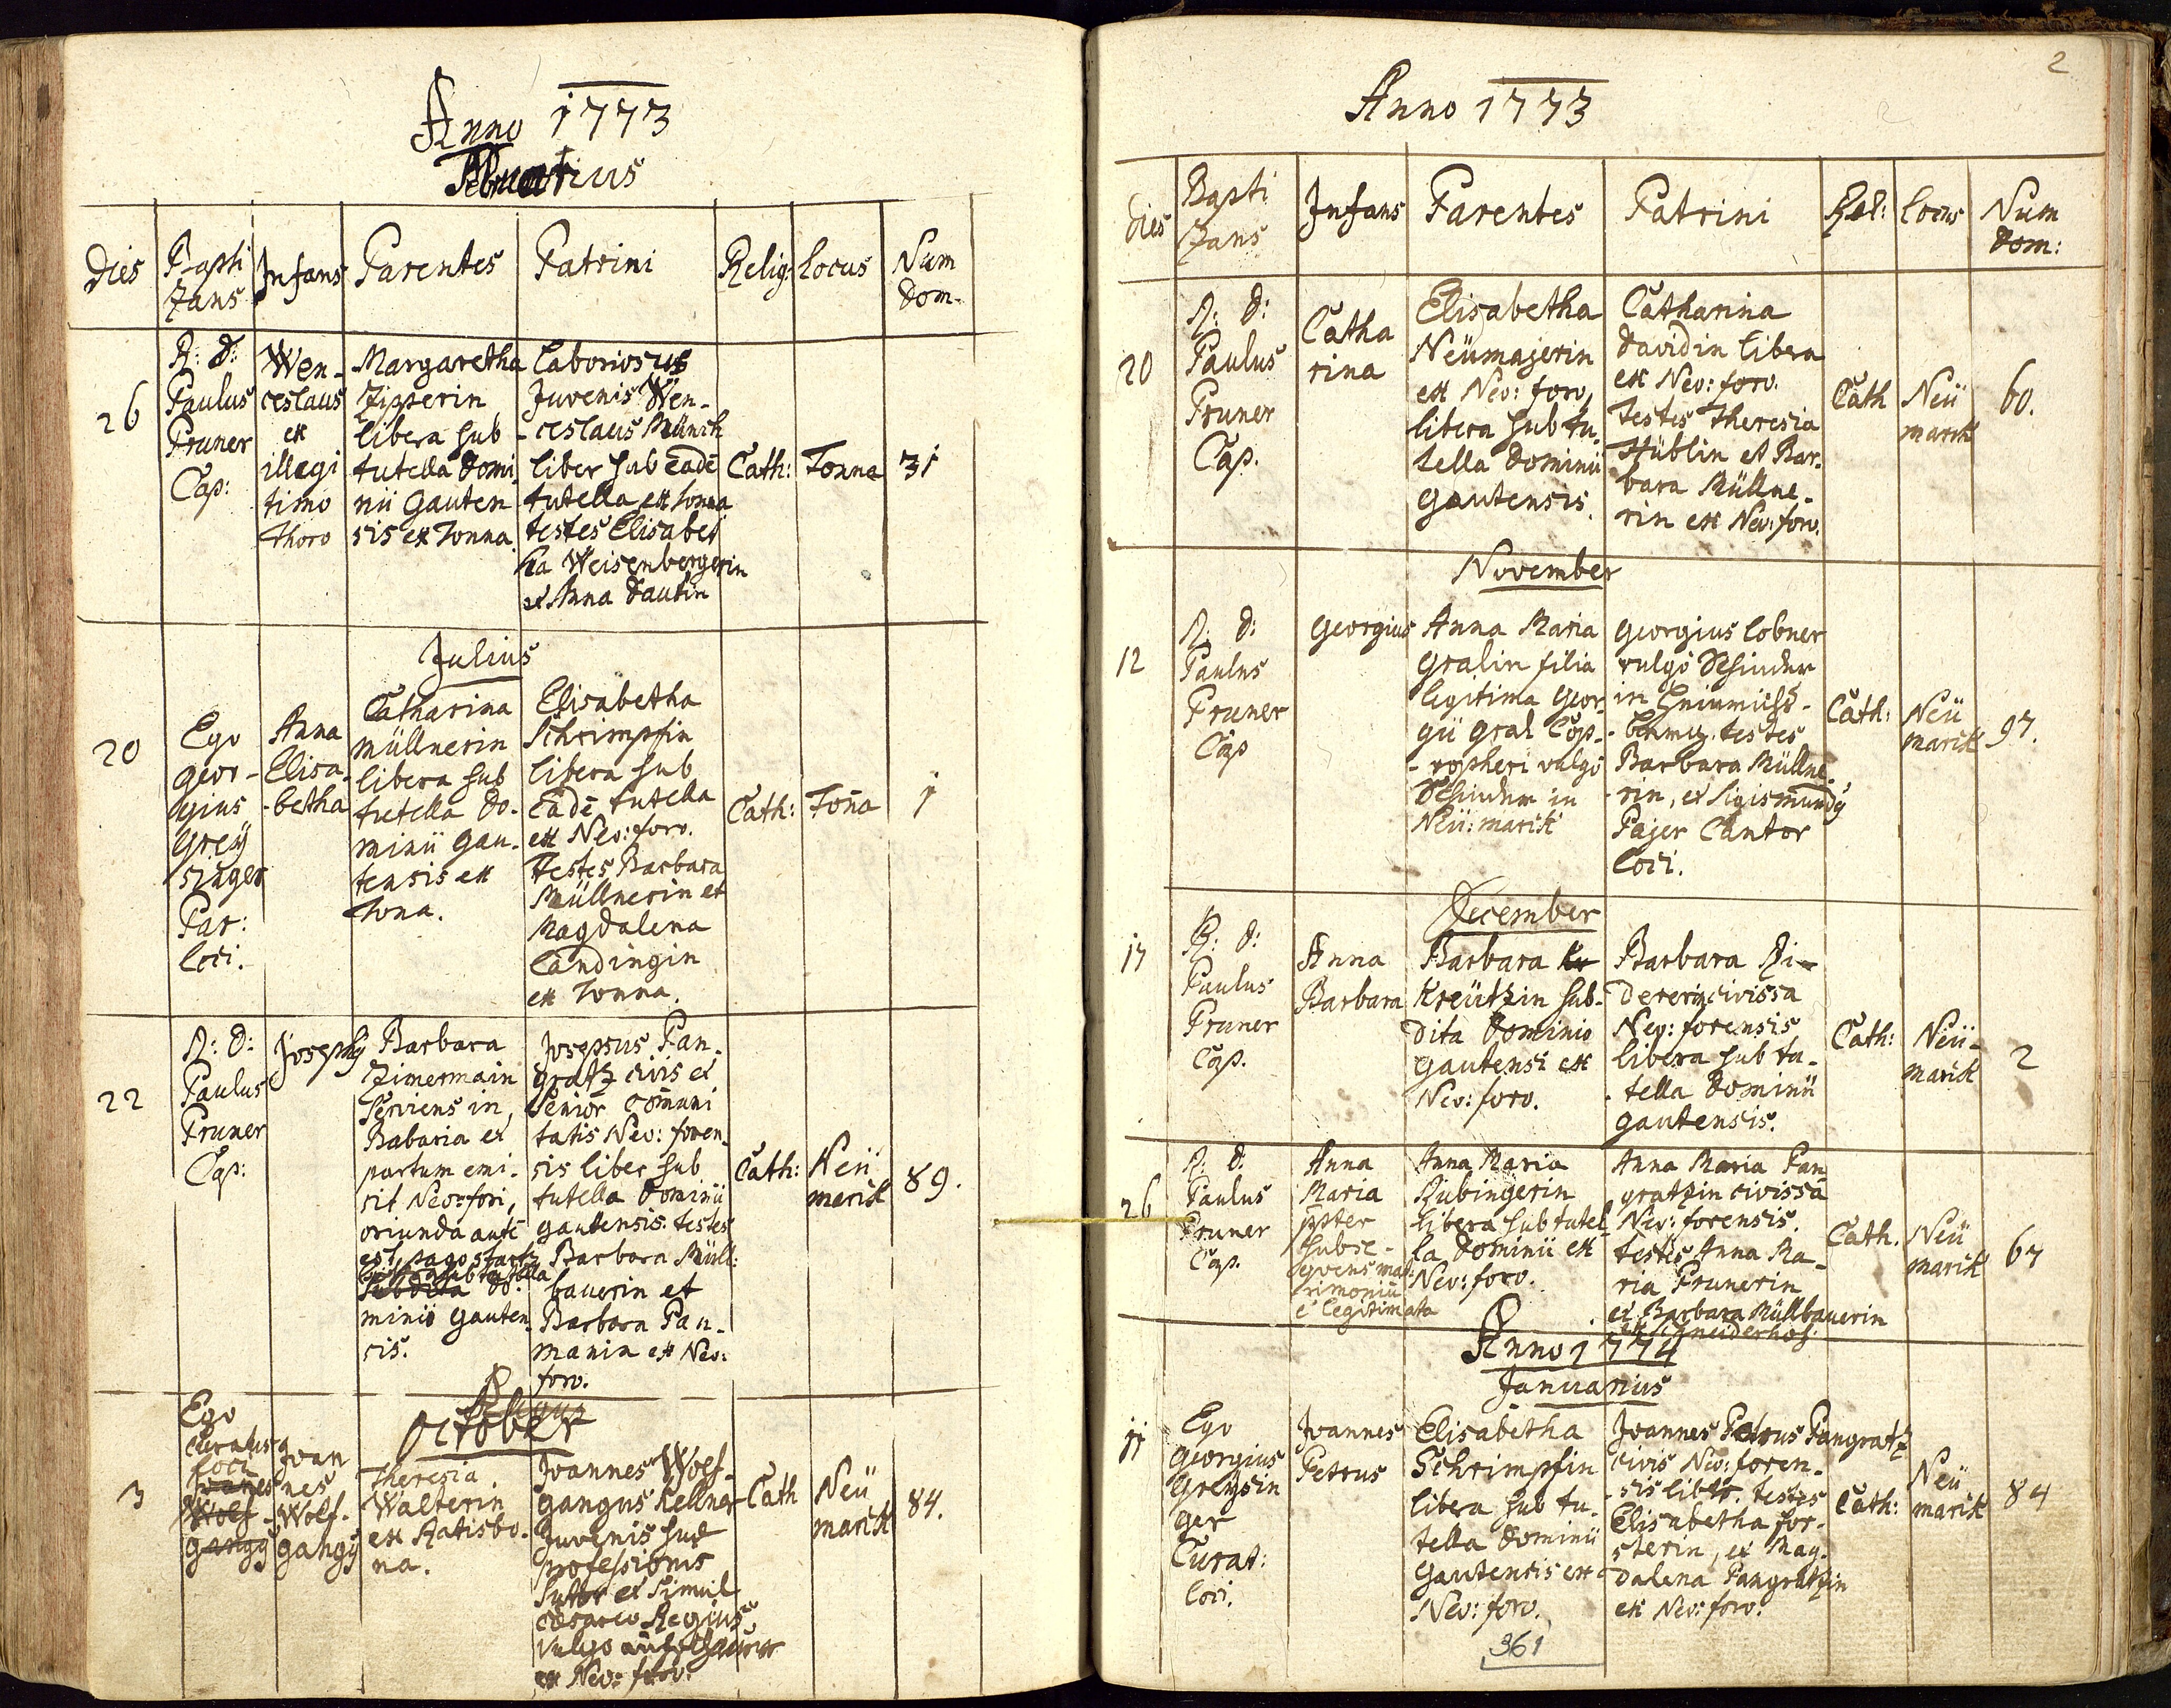 Anno 1773
Februarius
Dies
Bapti
zans
Infans
Parentes
Patrini
Relig:
Locus
Num
Dom.
26
R: D:
Paulus
Pruner
Cap:
Wen-
ceslaus
ex
illegi
timo
thoro
Margaretha
Zipperin
libera sub
tutella Domi-
nii Gauten
sis ex Tonna.
Laboriosus
Juvenis Wen-
-ceslaus Münch
liber sub eadē
tutella ex Tonna
testes Elisabet
ha Weisenbergerin
et Anna Dautin
Cath:
Tonna
31
Julius
20
Ego
Geor-
gius
Greÿ
singer
Par:
loci.
Anna
Elisa-
-betha
Catharina
Müllnerin
libera sub
tutella Do-
minii Gau-
tensis ex
Tona.
Elisabetha
Schrimpfin
libera sub
eadē tutella
ex Neo: foro.
Testes Barbara
Müllnerin et
Magdalena
Landingin
ex Tonna.
Cath:
Toña
1
22
R: D:
Paulus
Pruner
Cap:
Josephy
Barbara
Zimermain
serviens in
Babaria et
partum emi-
sit Neo: fori,
oriunda autē
est, pago
libera sub tutella
subdita Do-
minii Gauten
sis.
Josepsus Pan-
gratz civis et
Senior com̄uni
tatis Neo: foren-
sis liber sub
tutella Dominii
gautensis. testes
Barbara Müll:
bauerin et
Barbara Pan-
manin ex Neo:
foro.
Cath:
Neü
marck
89.
October
3
Ego
Curatus
loci
Joanes
Wolf-
gangy
Joan
nes
Wolf-
gangy
Theresia
Walterin
ex Ratisbo-
na.
Joannes Wolf-
gangus Kellner
Juvenis suæ
professionis
Sutor et simul
Cæsareo Regius
vulgo
ex Neo: foro.
Cath
Neü
marck
84.
2
Anno 1773
Dies
Bapti
zans
Infans
Parentes
Patrini
Rel:
Locus
Num
Dom:
20
R: D:
Paulus
Pruner
Cap.
Catha
rina
Elisabetha
Neümajerin
ex Neo: foro,
libera sub tu-
tella Dominii
Gautensis.
Catharina
Davidin libera
ex Neo: foro.
Testes Theresia
Hüblin et Bar-
bara Müllne-
rin ex Neo: foro.
Cath
Neü
marck
60.
November
12
R: D:
Paulus
Pruner
Cap
Georgius
Anna Maria
Gralin filia
legitima Geor-
gii Gral Cop-
-ropheri vulgo
Schinder in
Neü: marck
Georgius Lobner
vulgo Schinder
in
testes
Barbara Müllne-
-rin, et Sigismundy
Pajer Cantor
loci.
Cath:
Neü
marck
97.
December
17
R: D:
Paulus
Pruner
Cap.
Anna
Barbara
Barbara Kr
Kreützin sub-
dita Dominio
Gautensi ex
Neo: foro.
Barbara Ri-
dererin civissa
Neo: forensis
libera sub tu-
-tella Dominii
Gautensis.
Cath:
Neü-
marck
2
26
R: D:
Paulus
Pruner
Cap.
Anna
Maria
ppter
subse-
qvens mat-
rimoniū
ē legitimata
Anna Maria
Rubingerin
libera sub tutel-
la Dominii ex
Neo: foro.
Anna Maria Pan
gratzin civissa
Neo: forensis.
testis Anna Ma-
ria Prunerin
et Barbara Müllbauerin
ex Schneiderhof.
Cath.
Neü
marck
67
Anno 1774
Januarius
11
Ego
Georgius
Greysin
ger
Curat:
loci.
Joannes
Petrus
Elisabetha
Schrimpfin
libera sub tu-
tella Dominii
Gautensis ex
Neo: foro.
Joannes Petrus Pangratz
civis Neo: foren-
-sis liber. testes
Elisabetha For-
sterin, et Mag-
dalena Pangratzin
ex Neo: foro.
Cath:
Neü
marck
84
361